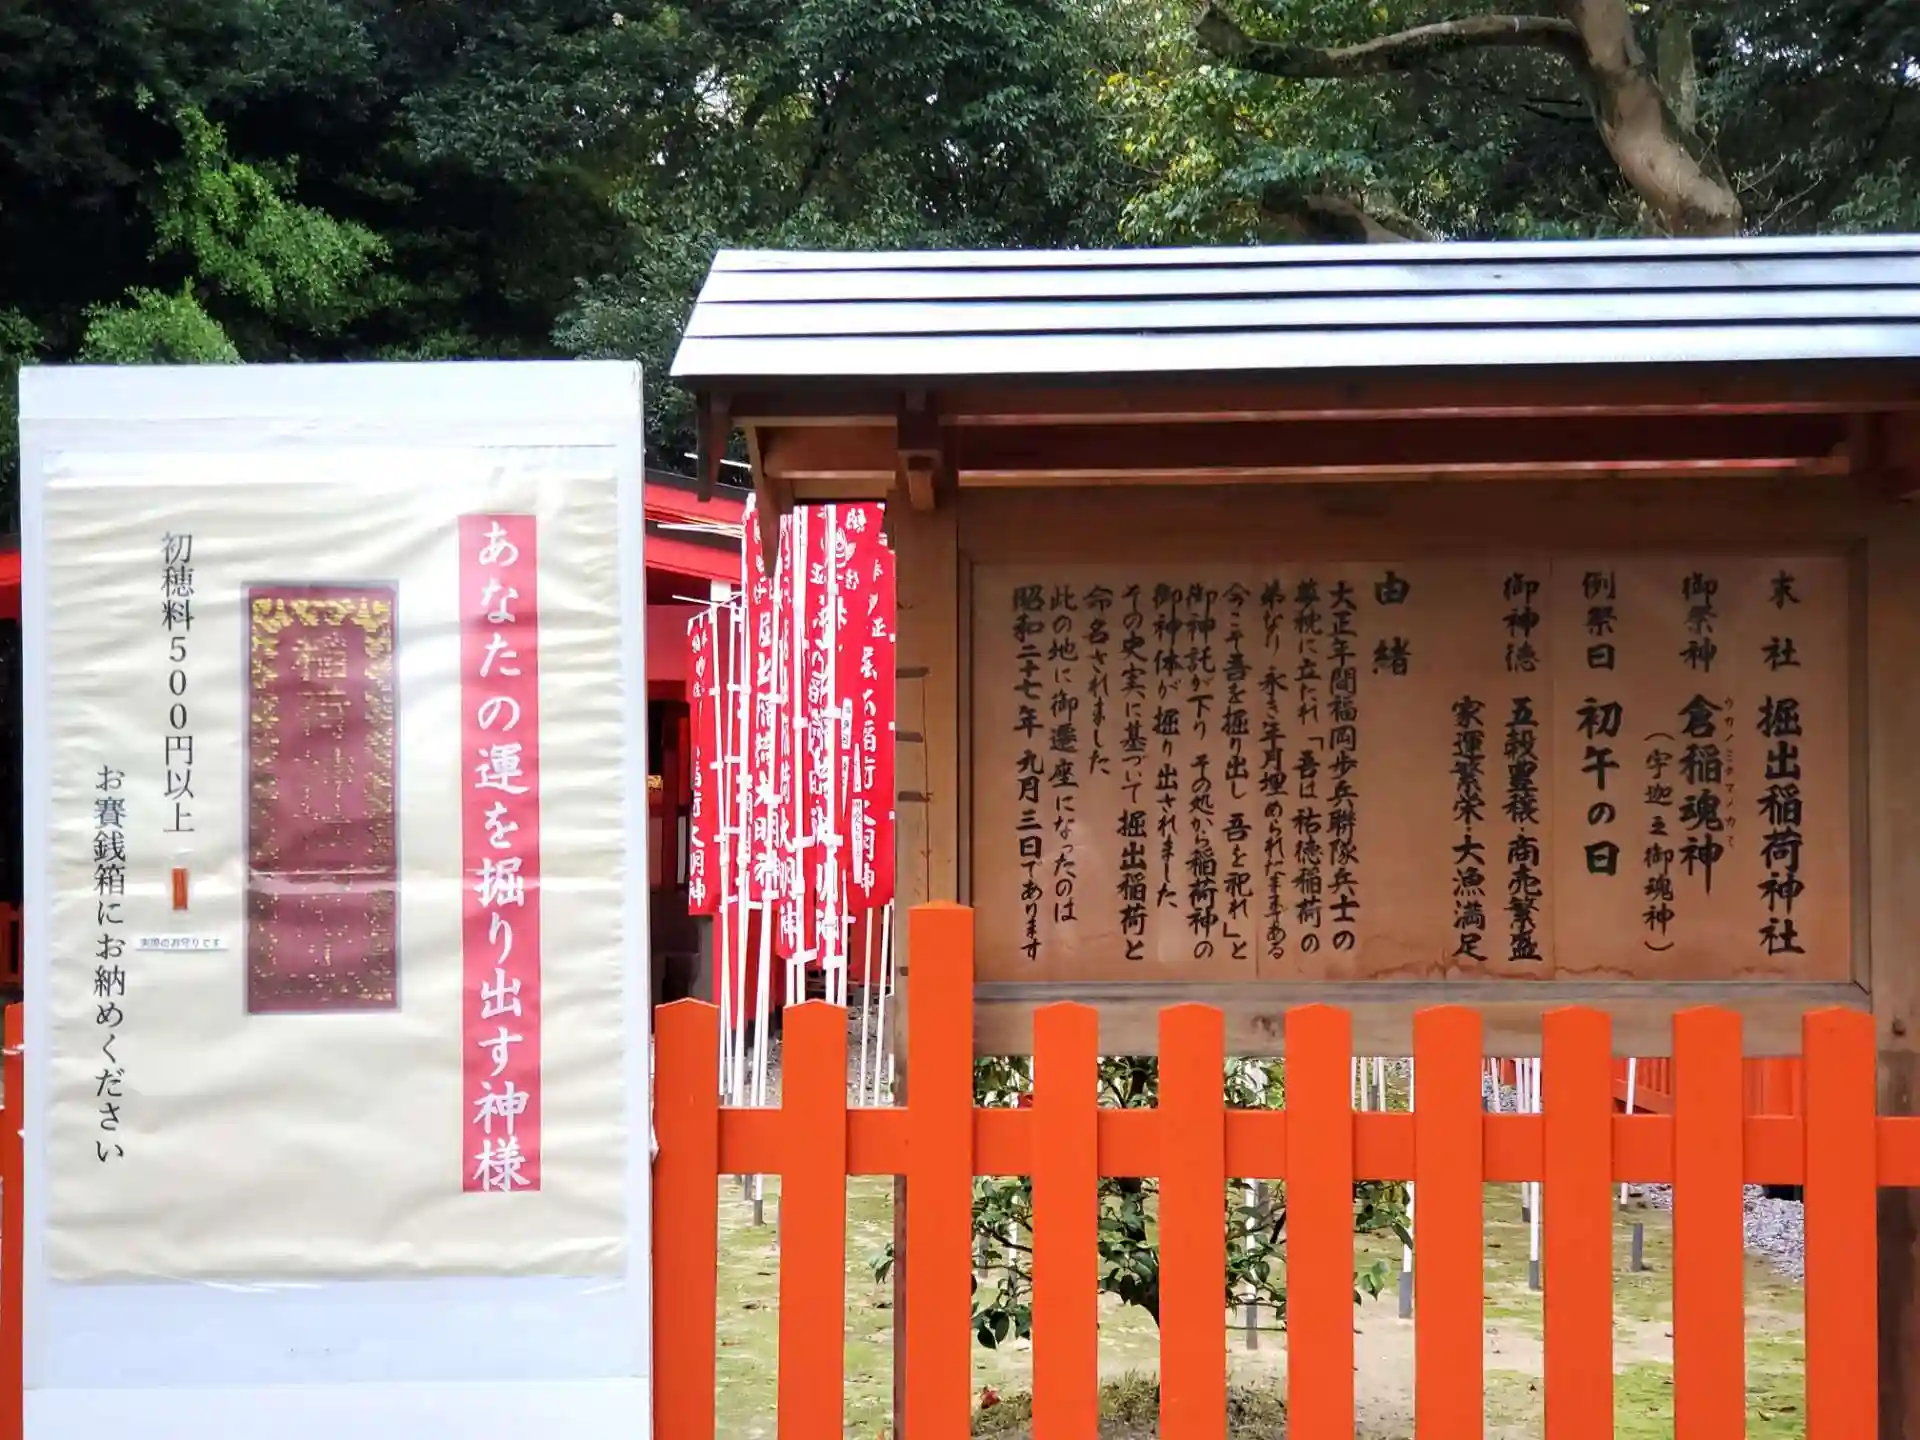 あなたの運を掘り出す神様
初穂料500円以上
実際のお守りです
お賽銭箱にお納めください
末社 掘出稲荷神社
御祭神 倉稲魂神
ウカノミタマノカミ
(宇迦之御魂神)
例祭日 初午の日
御神徳 五穀豊穣・商売繁盛
家運繁栄・大漁満足
由緒
大正年間福岡歩兵聯隊兵士の
夢枕に立たれ「吾は祐徳稲荷の
弟なり 永き年月埋められたままである
今こそ吾を掘り出し 吾を祀れ」と
御神託が下り その処から稲荷神の
御神体が掘り出されました
その史実に基づいて掘出稲荷と
命名されました
此の地に御遷座になったのは
昭和二十七年 九月三日であります